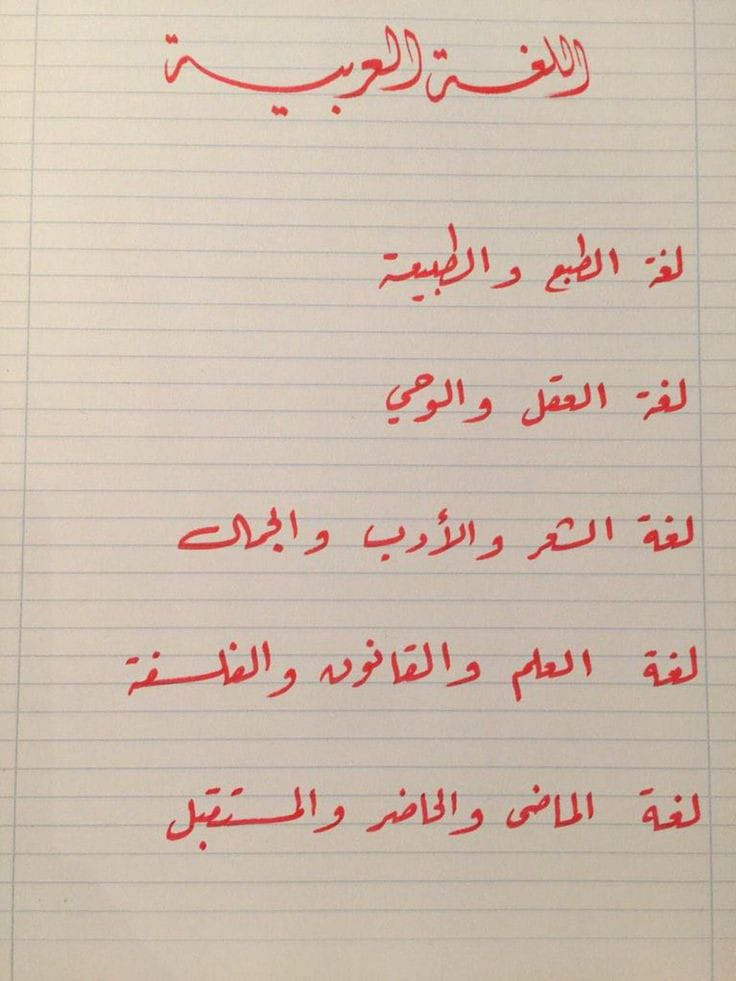 اللغة العربية
لغة الطبع والطبيعة
لغة العقل والوحي
لغة الشعر والأدب والجمال
لغة العلم والقانون والفلسفة
لغة الماضى والحاضر والمستقبل